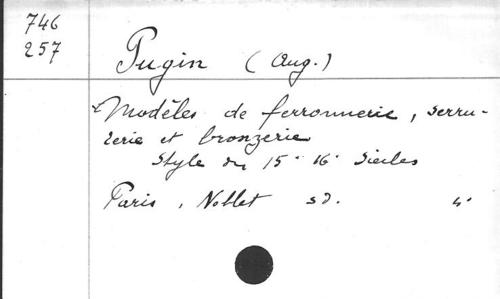 746
257
Pugin (Aug.)
Modèles de ferronnerie, serru-
rerie et bronzerie
Style du 15e 16e siècles
Paris, Noblet sd. 4°